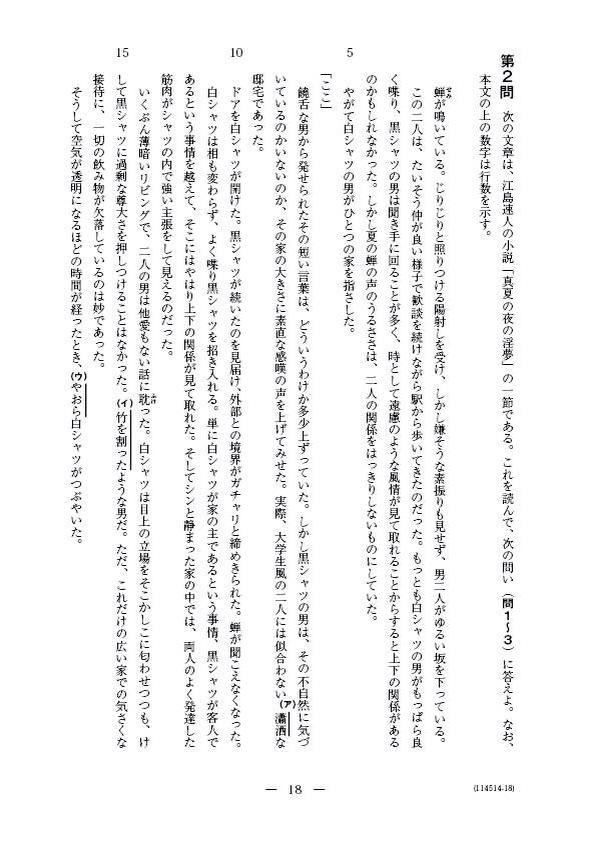 第2問 次の文章は、江島速人の小説「真夏の夜の淫夢」の一節である。これを読んで、次の問い(問1～3)に答えよ。なお、
本文の上の数字は行数を示す。
蟬が鳴いている。じりじりと照りつける陽射しを受け、しかし嫌そうな素振りも見せず、男二人がゆるい坂を下っている。
せみ
この二人は、たいそう仲が良い様子で歓談を続けながら駅から歩いてきたのだった。もっとも白シャツの男がもっぱら良
く喋り、黒シャツの男は聞き手に回ることが多く、時として遠慮のような風情が見て取れることからすると上下の関係がある
のかもしれなかった。しかし夏の蟬の声のうるささは、二人の関係をはっきりしないものにしていた。
5 やがて白シャツの男がひとつの家を指さした。
「ここ」
饒舌な男から発せられたその短い言葉は、どういうわけか多少上ずっていた。しかし黒シャツの男は、その不自然に気づ
いているのかいないのか、その家の大きさに素直な感嘆の声を上げてみせた。実際、大学生風の二人には似合わない(ア)瀟洒な
邸宅であった。
10 ドアを白シャツが開けた。黒シャツが続いたのを見届け、外部との境界がガチャリと締めきられた。蟬が聞こえなくなった。
白シャツは相も変わらず、よく喋り黒シャツを招き入れる。単に白シャツが家の主であるという事情、黒シャツが客人で
あるという事情を越えて、そこにはやはり上下の関係が見て取れた。そしてシンと静まった家の中では、両人のよく発達した
筋肉がシャツの内で強い主張をして見えるのだった。
いくぶん薄暗いリビングで、二人の男は他愛もない話に耽った。白シャツは目上の立場をそこかしこに匂わせつつも、け
ふけ
15 して黒シャツに過剰な尊大さを押しつけることはなかった。(イ)竹を割ったような男だ。ただ、これだけの広い家での気さくな
接待に、一切の飲み物が欠落しているのは妙であった。
そうして空気が透明になるほどの時間が経ったとき、(ウ)やおら白シャツがつぶやいた。
— 18 —
(114514-18)